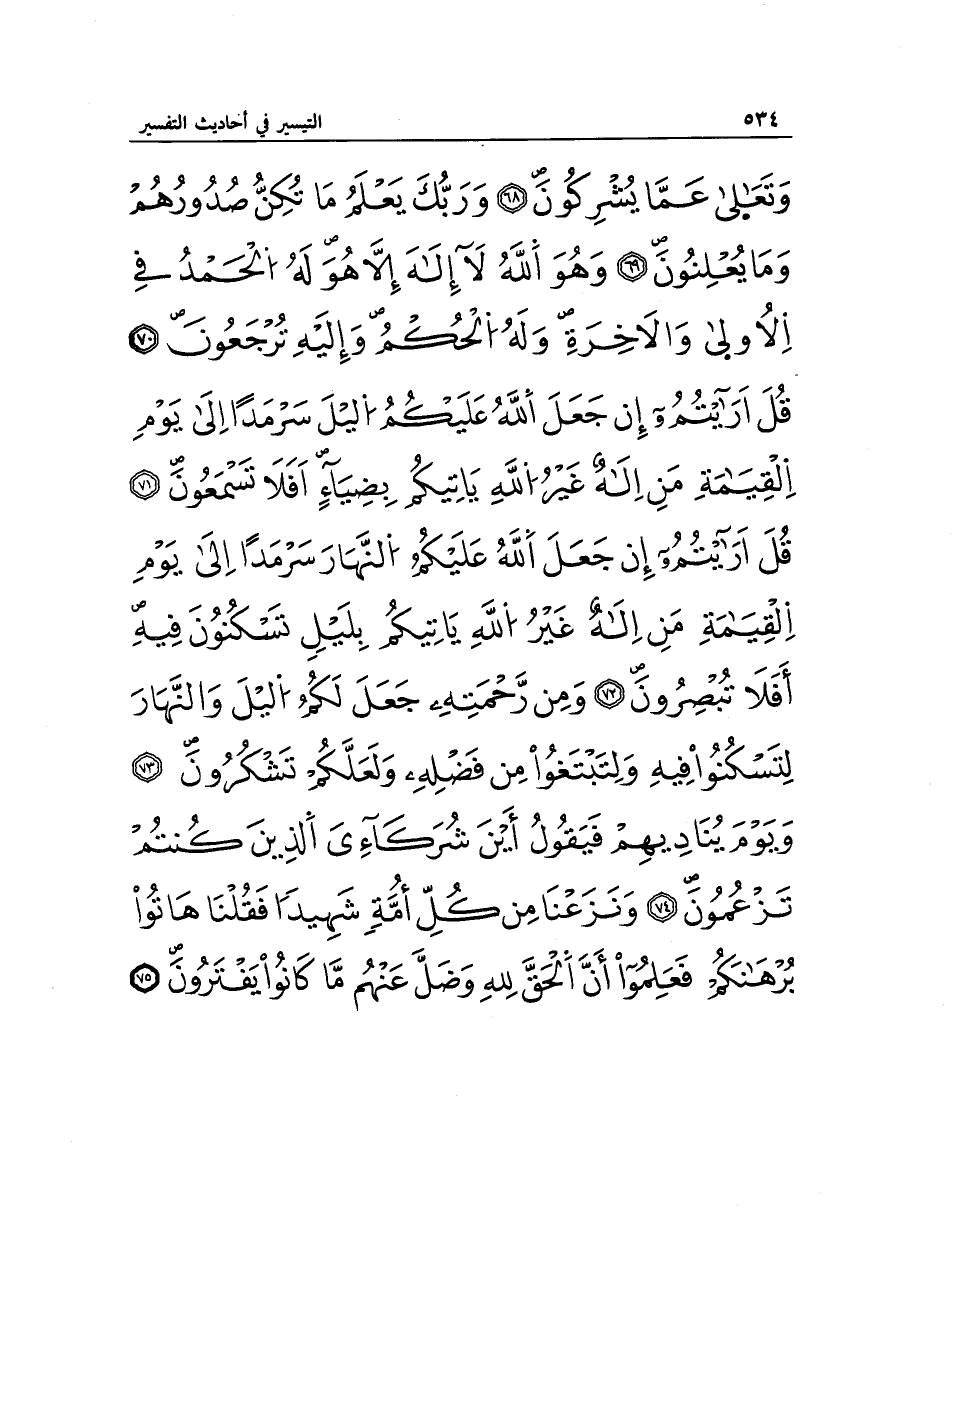 ٥٣٤ التيسير في أحاديث التفسير
وَتَعَٰلِىٰ عَمَّا يُشْرِكُونَۖ ٦٨ وَرَبُّكَ يَعْلَمُ مَا تُكِنُّ صُدُورُهُمْ
وَمَا يُعْلِنُونَۖ ٦٩ وَهُوَ اَ۬للَّهُ لَآ إِلَٰهَ إِلَّا هُوَۖ لَهُ اُ۬لْحَمْدُ فِے
اِ۬لُاولِىٰ وَالَاخِرَةِۖ وَلَهُ اُ۬لْحُكْمُۖ وَإِلَيْهِ تُرْجَعُونَۖ ٧٠
قُلَ اَرَٰٓيْتُمُۥٓ إِن جَعَلَ اَ۬للَّهُ عَلَيْكُمُ اُ۬ليْلَ سَرْمَداً اِلَىٰ يَوْمِ
اِ۬لْقِيَٰمَةِ مَنِ اِلَٰهٌ غَيْرُ اُ۬للَّهِ يَاتِيكُم بِضِيَآءٍۖ اَفَلَا تَسْمَعُونَۖ ٧١
قُلَ اَرَٰٓيْتُمُۥٓ إِن جَعَلَ اَ۬للَّهُ عَلَيْكُمُ اُ۬لنَّهَارَ سَرْمَداً اِلَىٰ يَوْمِ
اِ۬لْقِيَٰمَةِ مَنِ اِلَٰهٌ غَيْرُ اُ۬للَّهِ يَاتِيكُم بِلَيْلٍ تَسْكُنُونَ فِيهِۖ
أَفَلَا تُبْصِرُونَۖ ٧٢ وَمِن رَّحْمَتِهِۦ جَعَلَ لَكُمُ اُ۬ليْلَ وَالنَّهَارَ
لِتَسْكُنُواْ فِيهِ وَلِتَبْتَغُواْ مِن فَضْلِهِۦ وَلَعَلَّكُمْ تَشْكُرُونَۖ ٧٣
وَيَوْمَ يُنَادِيهِمْ فَيَقُولُ أَيْنَ شُرَكَآءِىَ اَ۬لذِينَ كُنتُمْ
تَزْعُمُونَۖ ٧٤ وَنَزَعْنَا مِن كُلِّ أُمَّةٍ شَهِيداً فَقُلْنَا هَاتُواْ
بُرْهَٰنَكُمْ فَعَلِمُوٓاْ أَنَّ اَ۬لْحَقَّ لِلهِ وَضَلَّ عَنْهُم مَّا كَانُواْ يَفْتَرُونَۖ ٧٥